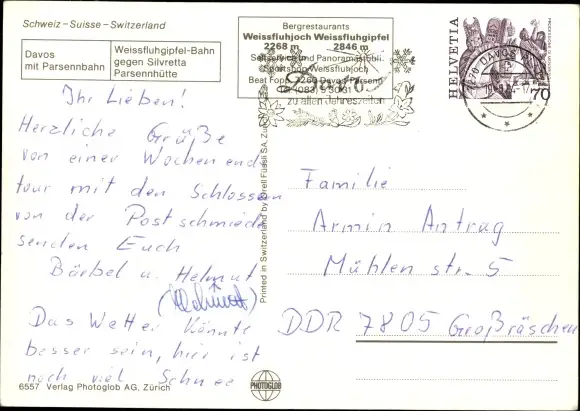 Schweiz - Suisse - Switzerland
Davos
mit Parsennbahn
Weissfluhgipfel-Bahn
gegen Silvretta
Parsennhütte
Bergrestaurants
Weissfluhjoch Weissfluhgipfel
2268 m 2846 m
Selfservice und Panoramastübli
Sportshop Weissfluhjoch
Beat Fopp, 7260 Davos-Parsenn
Tel. (083)
zu allen Jahreszeiten
HELVETIA
70
DAVOS
Ihr Lieben!
Herzliche Grüße
von einer Wochenend
tour mit den Schlossern
von der Postschmiede
senden Euch
Bärbel u. Helmut
(Helmut)
Das Wetter könnte
besser sein, hier ist
noch viel Schnee
Printed in Switzerland by Orell Füssli SA, Zürich
Familie
Armin Antrag
Mühlenstr. 5
DDR 7805 Großräschen
PHOTOGLOB
6557 Verlag Photoglob AG, Zürich